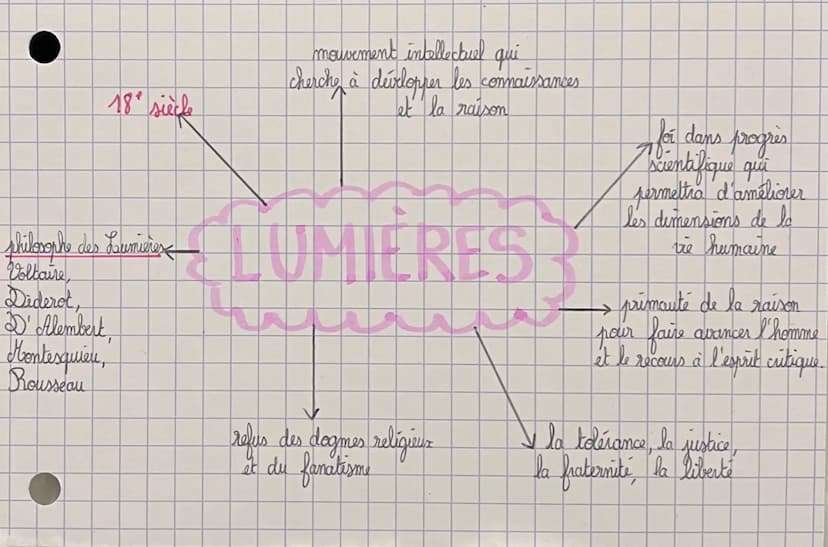 mouvement intellectuel qui
cherche à développer les connaissances
et la raison
18e siècle
foi dans progrès
scientifique qui
permettra d'améliorer
les dimensions de la
vie humaine
LUMIÈRES
philosophe des Lumières
Voltaire,
Diderot,
D'Alembert,
Montesquieu,
Rousseau
primauté de la raison
pour faire avancer l'homme
et le recours à l'esprit critique.
refus des dogmes religieux
et du fanatisme
la tolérance, la justice,
la fraternité, la liberté